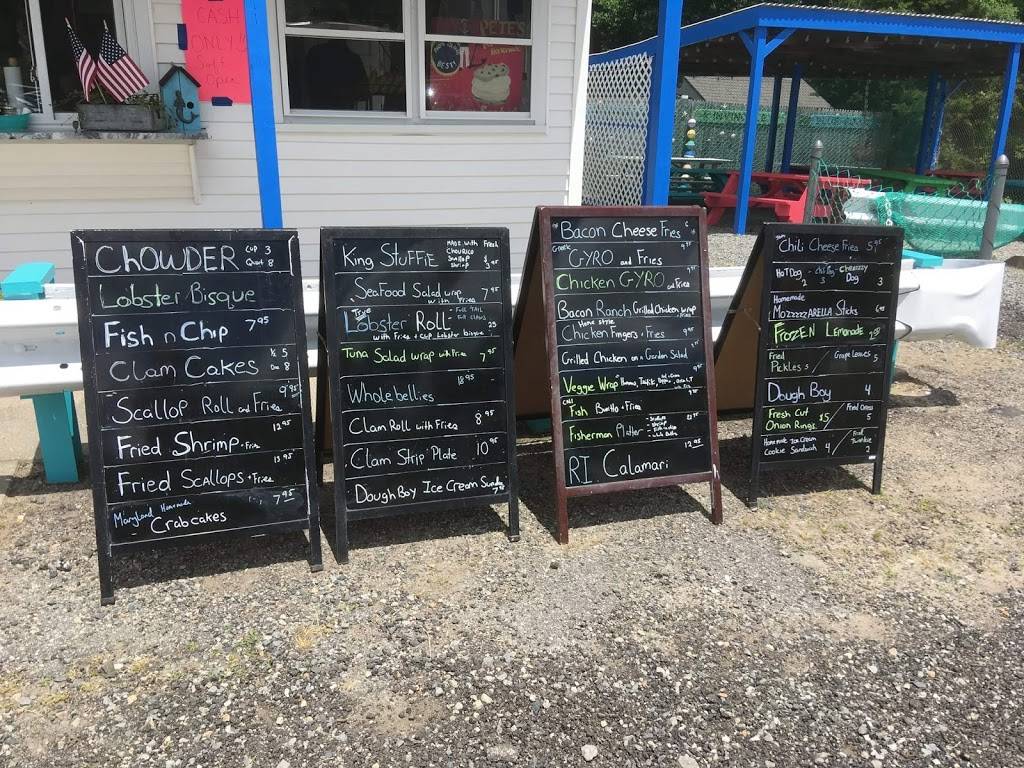 CASH
ONLY!!
PETE'S
BEST!
CHOWDER CUP 3
Quart 8
Lobster Bisque
Fish n Chip 7.95
Clam Cakes ½ 5
Doz 8
9.95
Scallop Roll and Fries
12.95
Fried Shrimp + Fries
13.95
Fried Scallops + Fries
7.95
Maryland Homemade
Crabcakes
King Stuffie MADE with Fresh
CHOURICO
Scallop
Shrimp
Seafood Salad wrap 7.95
with Fries
True
Lobster Roll 25
with Fries + cup Lobster bisque
Tuna Salad wrap with Fries 7.95
18.95
Whole bellies
Clam Roll with Fries 8.95
Clam Strip Plate 10.95
Dough Boy Ice Cream Sunday
Bacon Cheese Fries 6
Greek
GYRO and Fries
Chicken GYRO and Fries
Bacon Ranch Grilled Chicken wrap
Home style
Chicken Fingers + Fries
Grilled Chicken on a Garden Salad
Veggie Wrap
Fish Burrito + Fries
Fisherman Platter
12.95
RI Calamari
Chili Cheese Fries 5.95
Hot Dog 2 Chili Dog 3 Cheezzzy Dog 3
Homemade
MozzzzzARELLA Sticks
Frozen Lemonade
Fried Pickles 5 / Grape Leaves 5
Dough Boy 4
Fresh Cut Onion Rings / Fried Oreos 5
Home made Ice Cream Cookie Sandwich 4 / Fried Twinkie